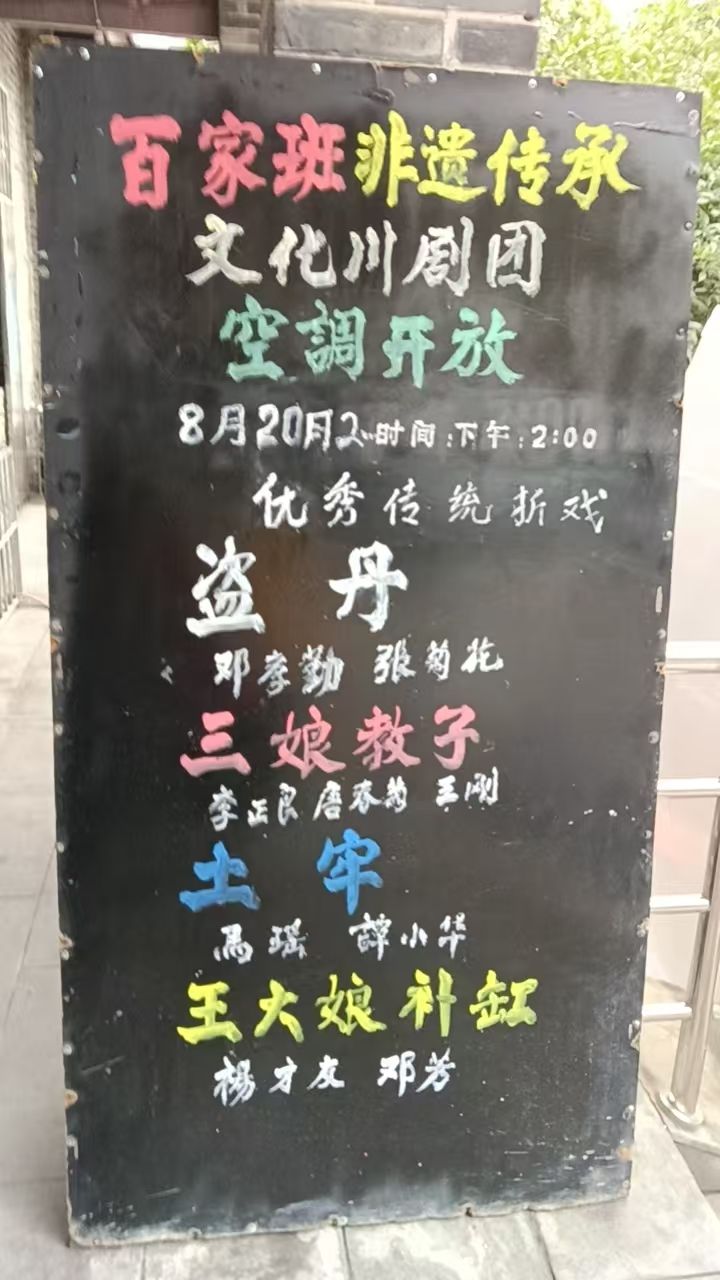 百家班非遗传承
文化川剧团
空調开放
8月20月2 时间:下午:2:00
优秀传统折戏
盗丹
邓李勤 张菊花
三娘教子
李正良 唐春菊 王刚
土牢
馬瑶 譚小华
王大娘补缸
楊才友 邓芳